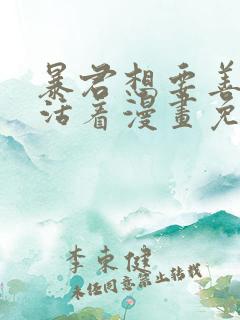 暴君想要善
活着漫畫免
李東健
未经同意禁止转载